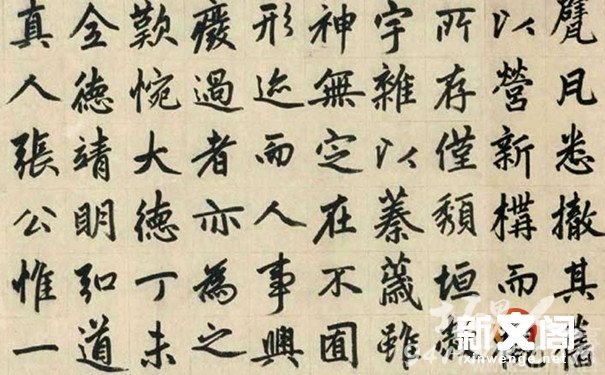 甓凡悉撤其舊
以營新構而
所存僅頹垣
宇雜以蓁薉雖
神無定在不囿
形迹而人事興
癈過者亦為之
歎惋大德丁未
全德靖明弘道
真人張公惟一
新文阁
ixinwenge.net